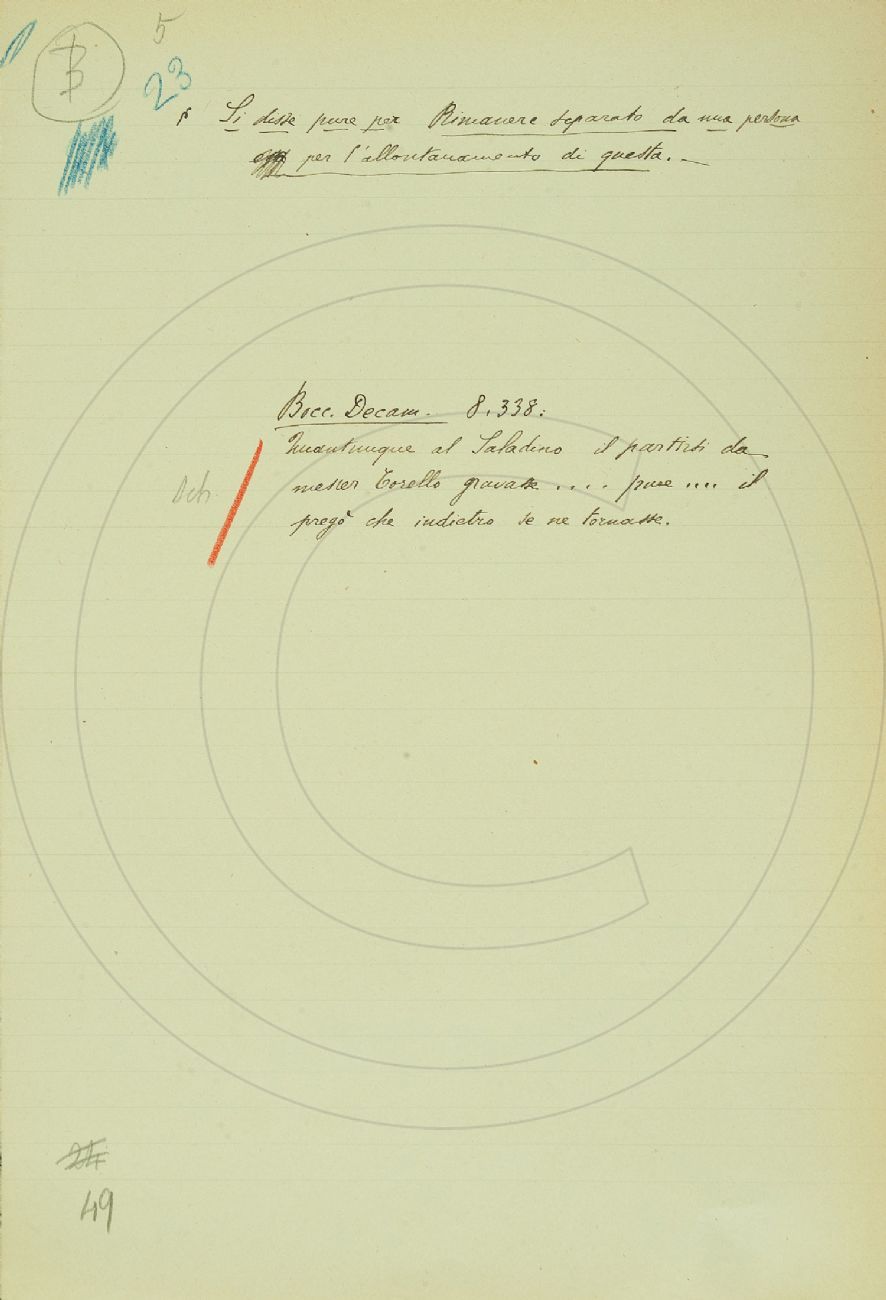 5
B
23
§ Si disse pure per Rimanere separato da una persona
per l'allontanamento di questa. —
Bocc. Decam. 8, 338:
Quantunque al Saladino il partirsi da
messer Torello gravasse .... pure .... il
pregò che indietro se ne tornasse.
49